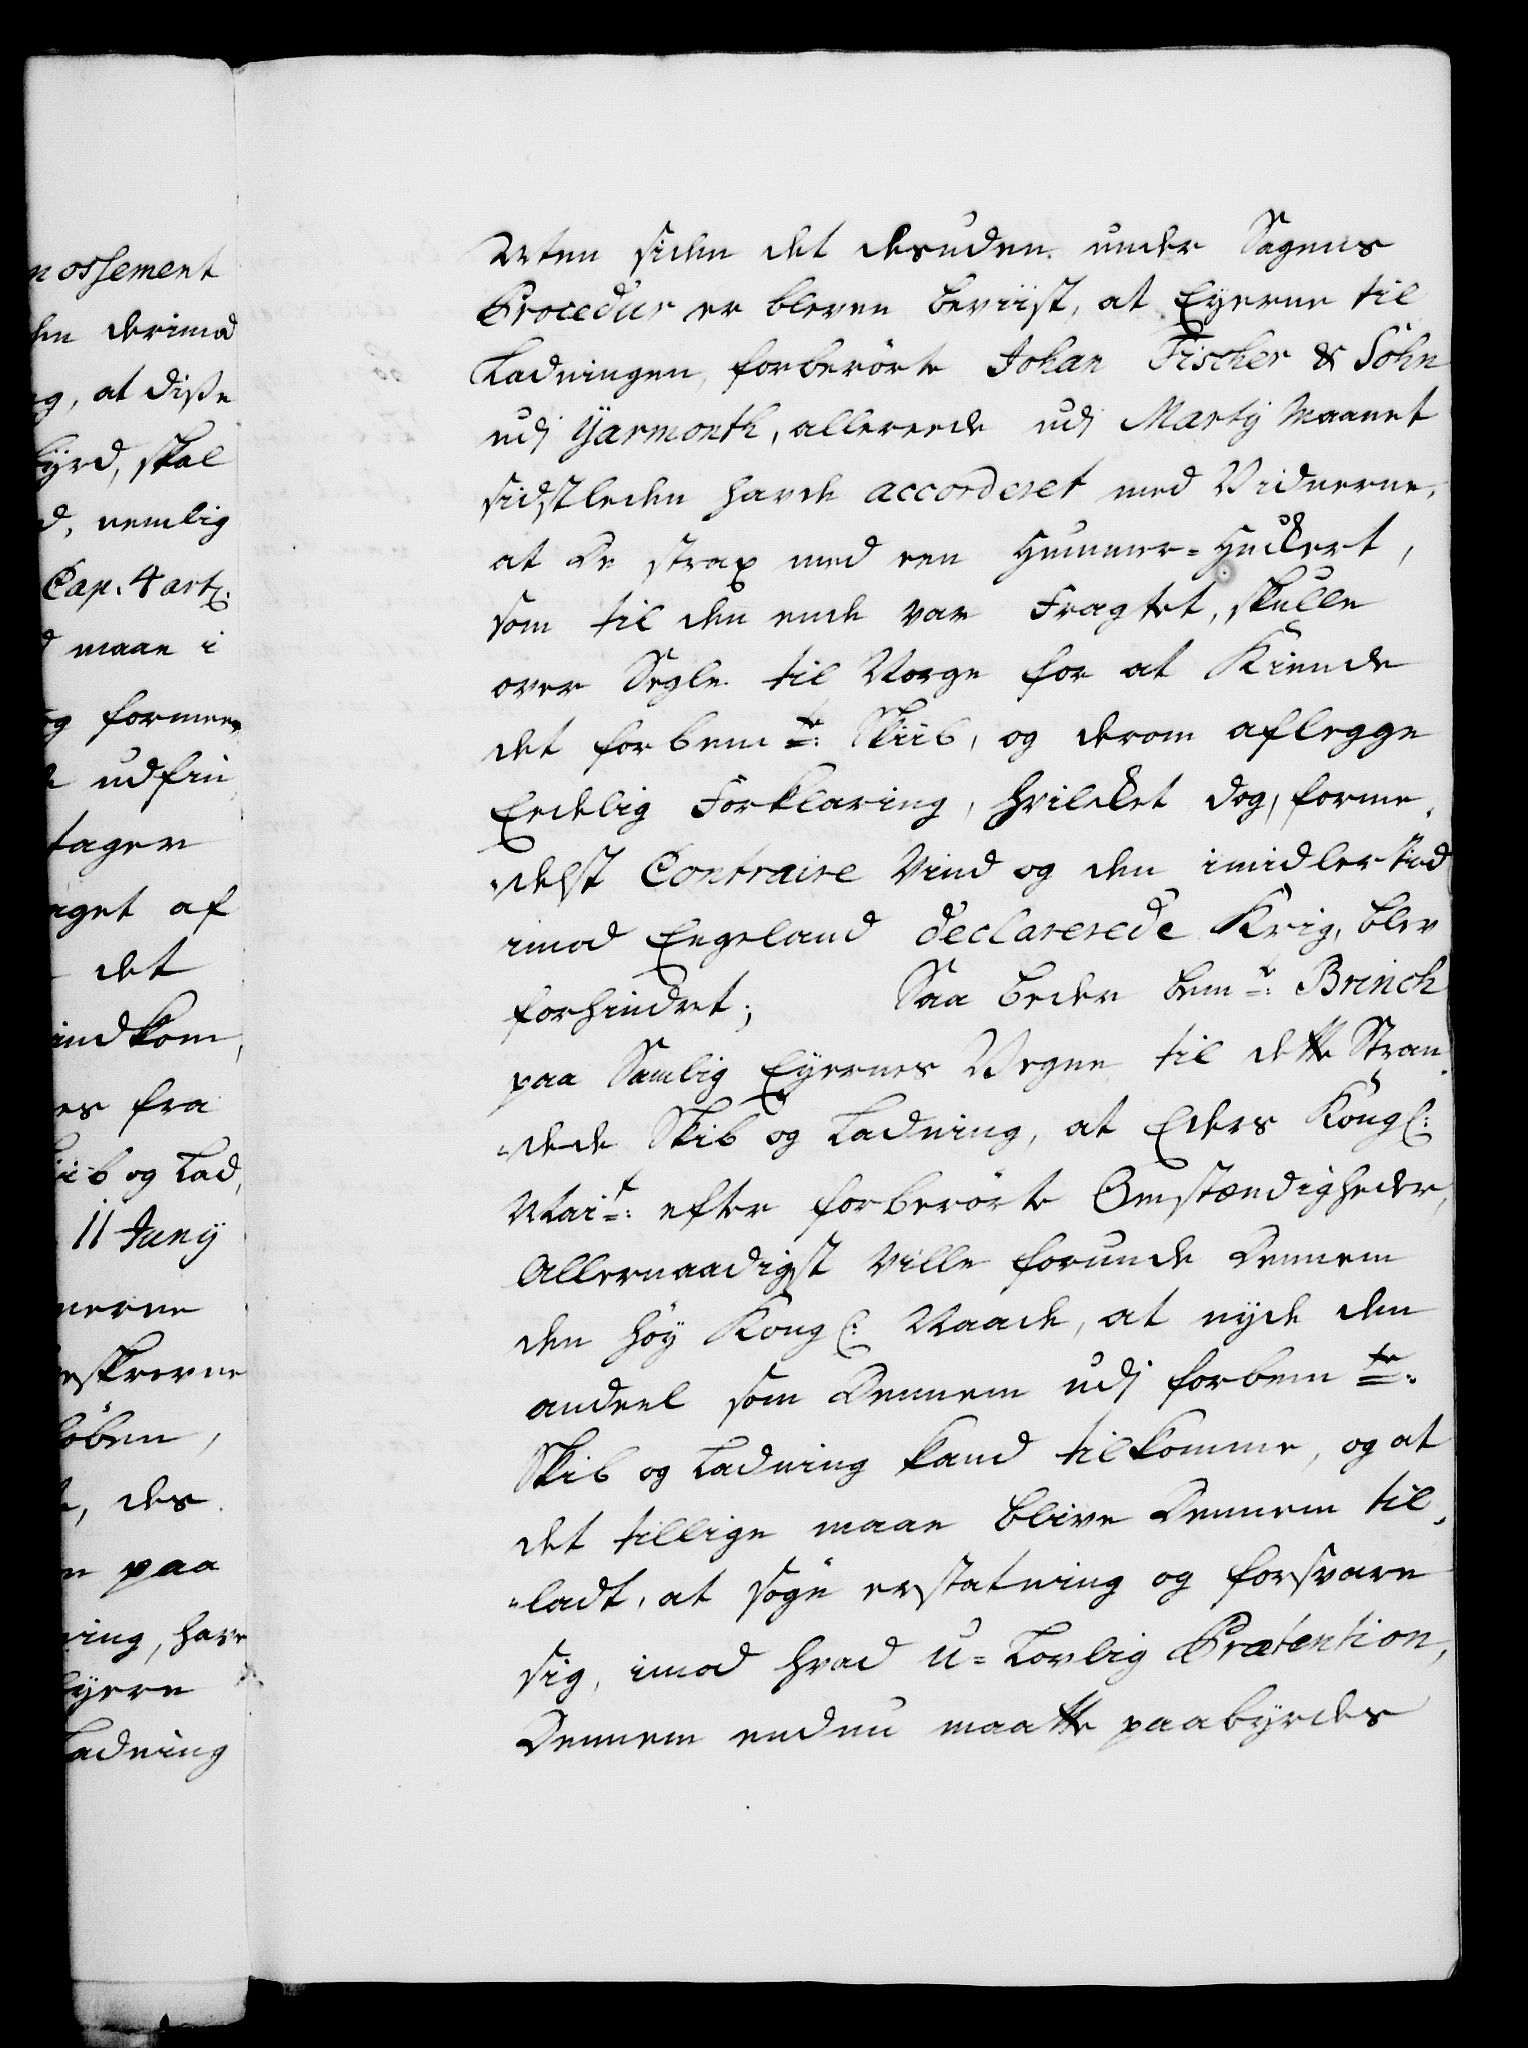 nossement
en derimod
g, at disse
byrd, skal
d, nemlig
Cap. 4 art:
d maae i
og formee
udfin
tager
iget af
det
indkom,
es fra
iib og Lad,
11 Juny
nerne
eskrevne
löben,
, des
n paa
ning, have
Eyere
Ladning
Men siden det desuden under Sagens
Procedur er bleven beviist, at Eyerne til
Ladningen, forberörte Johan Fischer & Söhn
udj Yarmonth, allereede udj Martij Maanet
sidstleden havde accorderet med Vidnerne,
at De strax med een Hummer=Huckert,
som til den ende var Fragtet, skulle
over Segle til Norge for at Kiende
det forbemte: Skiib, og derom aflegge
Eedelig Forklaring, hvilcket dog, forme,
„delst Contraire Vind og den imidlertiid
imod Engeland declarerede Krig, blev
forhindret; Saa beder bemte: Brinch
paa Samlig Eyernes Vegne til dette Stran,
„dede Skib og Ladning, at Eders Kongl:
Maitt: efter forberörte Omstændigheder,
Allernaadigst Ville forunde Dennem
den höy Kongl: Naade, at nyde den
andeel som Dennem udj forbemte:
Skib og Ladning kand tilkomme, og at
det tillige maae blive Dennem til,
„ladt, at söge erstatning og forsvare
sig, imod hvad U=Lovlig Prætention,
Dennem endnu maatte paabyrdes